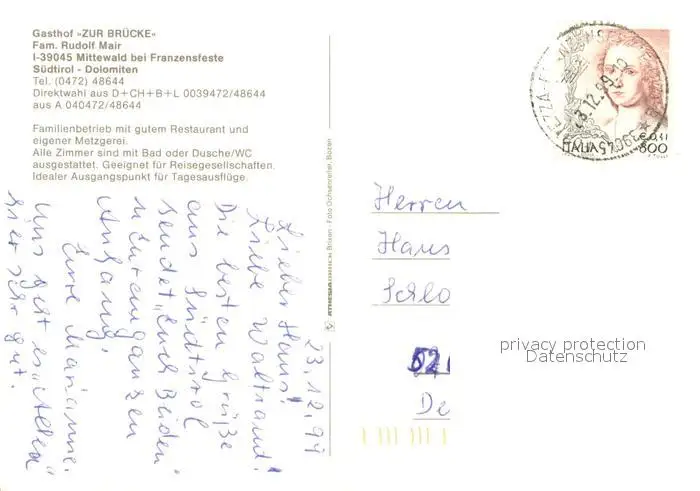 Gasthof »ZUR BRÜCKE«
Fam. Rudolf Mair
I-39045 Mittewald bei Franzensfeste
Südtirol - Dolomiten
Tel. (0472) 48644
Direktwahl aus D+CH+B+L 0039472/48644
aus A 040472/48644
Familienbetrieb mit gutem Restaurant und
eigener Metzgerei.
Alle Zimmer sind mit Bad oder Dusche/WC
ausgestattet. Geeignet für Reisegesellschaften.
Idealer Ausgangspunkt für Tagesausflüge.
23.12.99
Lieber Hans!
Liebe Waltraud!
Die besten Grüße
aus Südtirol
sendet „Euch Beiden"
u Eurem ganzen
Anhang,
Eure Marianne.
Uns geht es „Allen"
hier sehr gut.
ATHESIADRUCK Brixen - Foto Ochsenreiter, Bozen
23.12.99-12
39045
ITALIA
€ 0,41
800
Herren
Hans
Schlo
52
De
privacy protection
Datenschutz